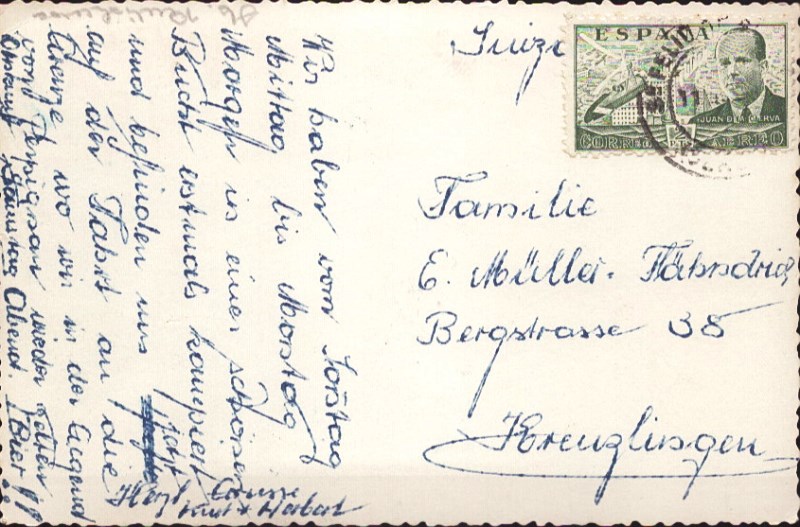 Wir haben von Sonntag
Mittag bis Montag
Morgen in einer schönen
Bucht erstmals kampiert
und befinden uns jetzt
auf der Fahrt an die
Grenze wo wir in der Gegend
von Perpignan wieder
Samstag Abend.
Herzl. Grüsse
Kurt + Herbert
Suiza
ESPAÑA
JUAN DE LA CIERVA
CORREO AEREO
Familie
E. Müller-Fähndrich
Bergstrasse 38
Kreuzlingen